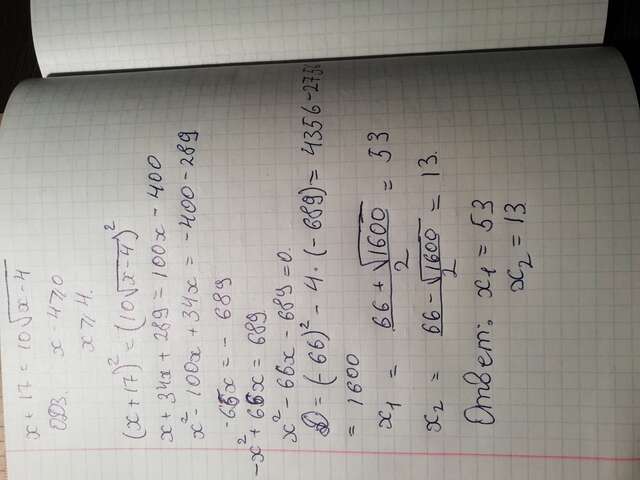 x + 17 = 10√x - 4
ОДЗ. x - 4 ⩾ 0
x ⩾ 4.
(x + 17)² = (10√x-4)²
x + 34x + 289 = 100x - 400
x² - 100x + 34x = -400 - 289
-66x = - 689
-x² + 66x = 689
x² - 66x - 689 = 0.
D = (-66)² - 4 · (-689) = 4356 - 2756
= 1600
x₁ = (66 + √1600)/2 = 53
x₂ = (66 - √1600)/2 = 13.
Ответ: x₁ = 53
x₂ = 13